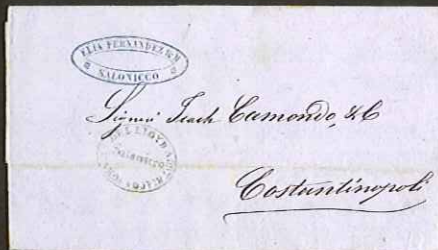 ELIA FERNANDEZ & M
SALONICCO
Signori Isach Camondo, & C
Salonicco
Costantinopoli